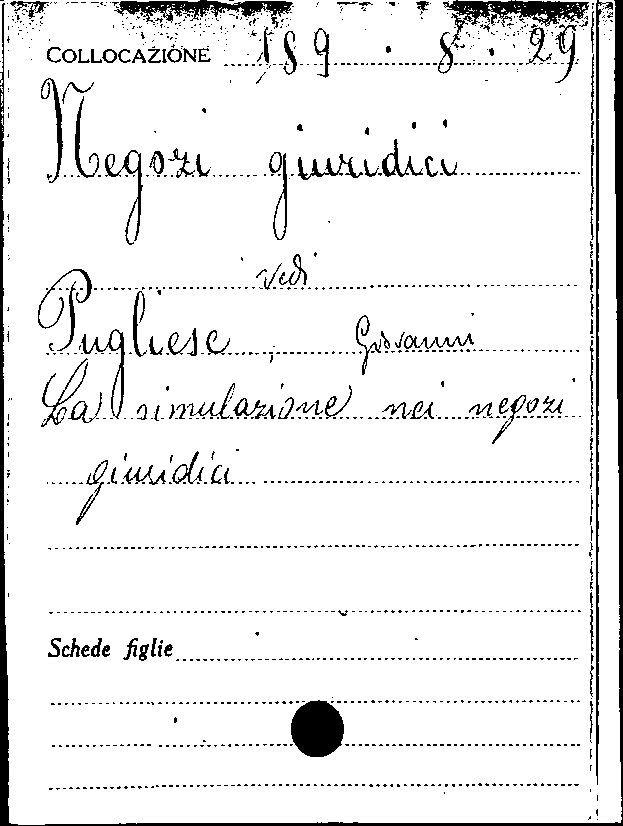 COLLOCAZIONE 189 . 8 . 29
Negozi giuridici
vedi
Pugliese, Giovanni
La simulazione nei negozi
giuridici
Schede figlie